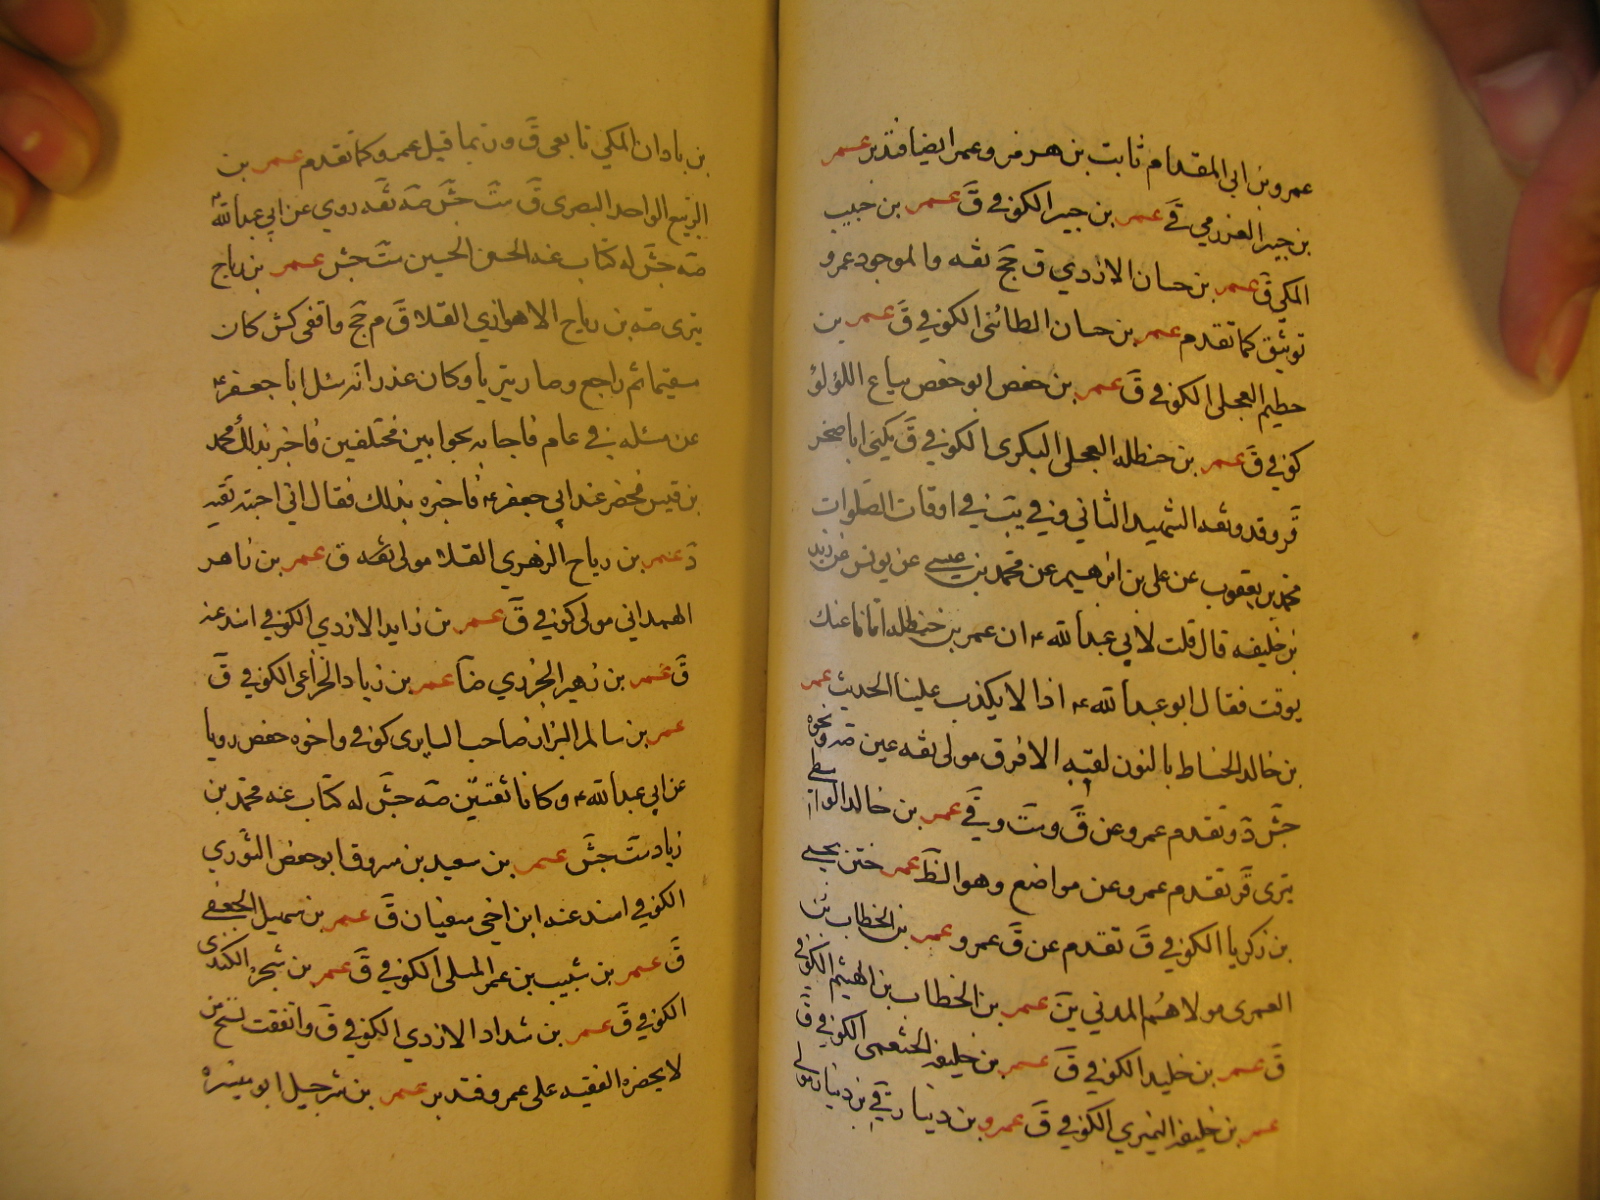 عمرو بن ابى المقدام ثابت بن هرمز وعمر ايضا فتدبر عمر
بن جبير العزرمي قے عمر بن جبير الكوفي ق عمر بن حبيب
المكي ق عمر بن حسان الازدي ق جخ ثقه والموجود عمرو
توثيق كما تقدم عمر بن حسان الطائى الكوفي ق عمر بن
حطيم العجلى الكوفي ق عمر بن حفص ابو حفص بياع اللؤلؤ
كوفي ق عمر بن حنظله العجلى البكرى الكوفي ق يكنى ابا صخر
قر وقد وثقه الشهيد الثاني وفي يب في اوقات الصلوات
محمد بن يعقوب عن على بن ابرهيم عن محمد بن عيسى عن يونس عن يزيد
بن خليفه قال قلت لابي عبدالله ع ان عمر بن حنظله اتانا عنك
بوقت فقال ابو عبدالله ع اذا لا يكذب علينا الحديث عمر
بن خالد الحناط بالنون لقبه الافرق مولى ثقه عين صه ونحوه
جش د وتقدم عمرو عن ق وست وقے عمر بن خالد الواسطي
بترى قر تقدم عمرو عن مواضع وهو الظ عمر ختن يحيى
بن زكريا الكوفي ق تقدم عن ق عمرو عمر بن الخطاب بن
العمرى مولاهم المدني ين عمر بن الخطاب بن الهيثم الكوفي
ق عمر بن خليد الكوفي ق عمر بن خليفه الخثعمى الكوفي ق
عمر بن خليفه النميري الكوفي ق عمرو بن دينار قے بن دينار مولى
بن باذان المكي تابعى ق وربما قيل عمرو كما تقدم عمر بن
الربيع ابو احمد البصرى ق ست جش صه ثقه روي عن ابي عبدالله ع
صه جش له كتاب عنه الحسن الحسين ست جش عمر بن رباح
بترى صه بن رياح الاهوازي القلا ق م جخ واقفى كش كان
مستقيما ثم راجع وصار بتريا وكان عذر انه سئل ابا جعفر ع
عن مسئله في عام فاجابه بجوابين مختلفين فاخبر بذلك محمد
بن قيس فحضر عند ابي جعفر ع فاخبره بذلك فقال اني اجبته تقيه
د عمر بن رياح الزهري القلا مولى ثقه ق عمر بن زاهر
الهمداني مولى كوفي ق عمر بن زايد الازدي الكوفي اسند عنه
ق عمر بن زهير الجزري ضا عمر بن زياد الخزاعى الكوفي ق
عمر بن سالم البزاز صاحب السابرى كوفي واخوه حفص رويا
عن ابي عبدالله ع وكانا ثقتين صه جش له كتاب عنه محمد بن
زياد ست جش عمر بن سعيد بن مسروق ابو حفص الثوري
الكوفي اسند عنه ابن اخي سفيان ق عمر بن سميل الجعفي
ق عمر بن شبيب بن عمر المسلى الكوفي ق عمر بن شجره الكندى
الكوفي ق عمر بن شداد الازدي الكوفي ق واتفقت نسخ من
لا يحضره الفقيه على عمرو فتدبر عمر بن شرحبيل ابو ميسره